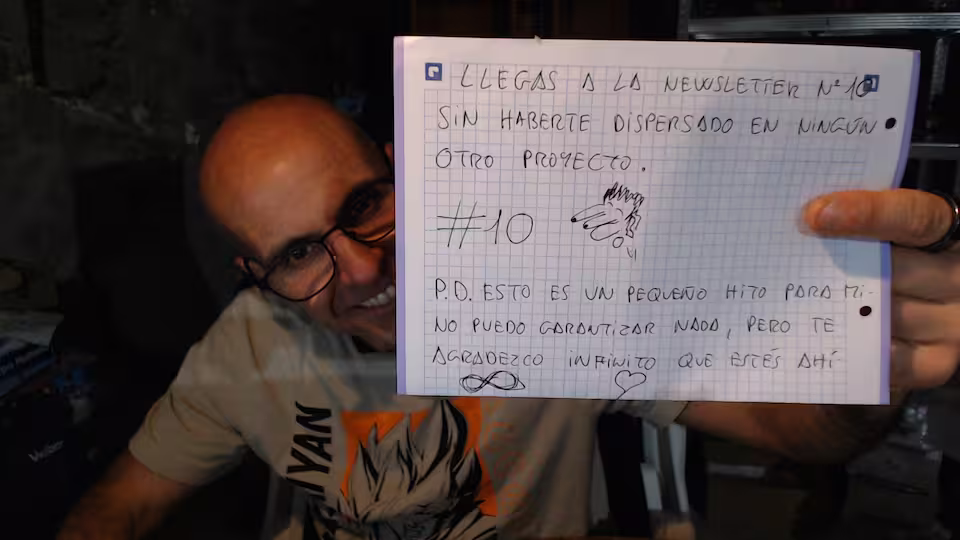 LLEGAS A LA NEWSLETTER Nº10
SIN HABERTE DISPERSADO EN NINGÚN
OTRO PROYECTO.
#10
P.D. ESTO ES UN PEQUEÑO HITO PARA MI.
NO PUEDO GARANTIZAR NADA, PERO TE
AGRADEZCO INFINITO QUE ESTÉS AHÍ
IYAN